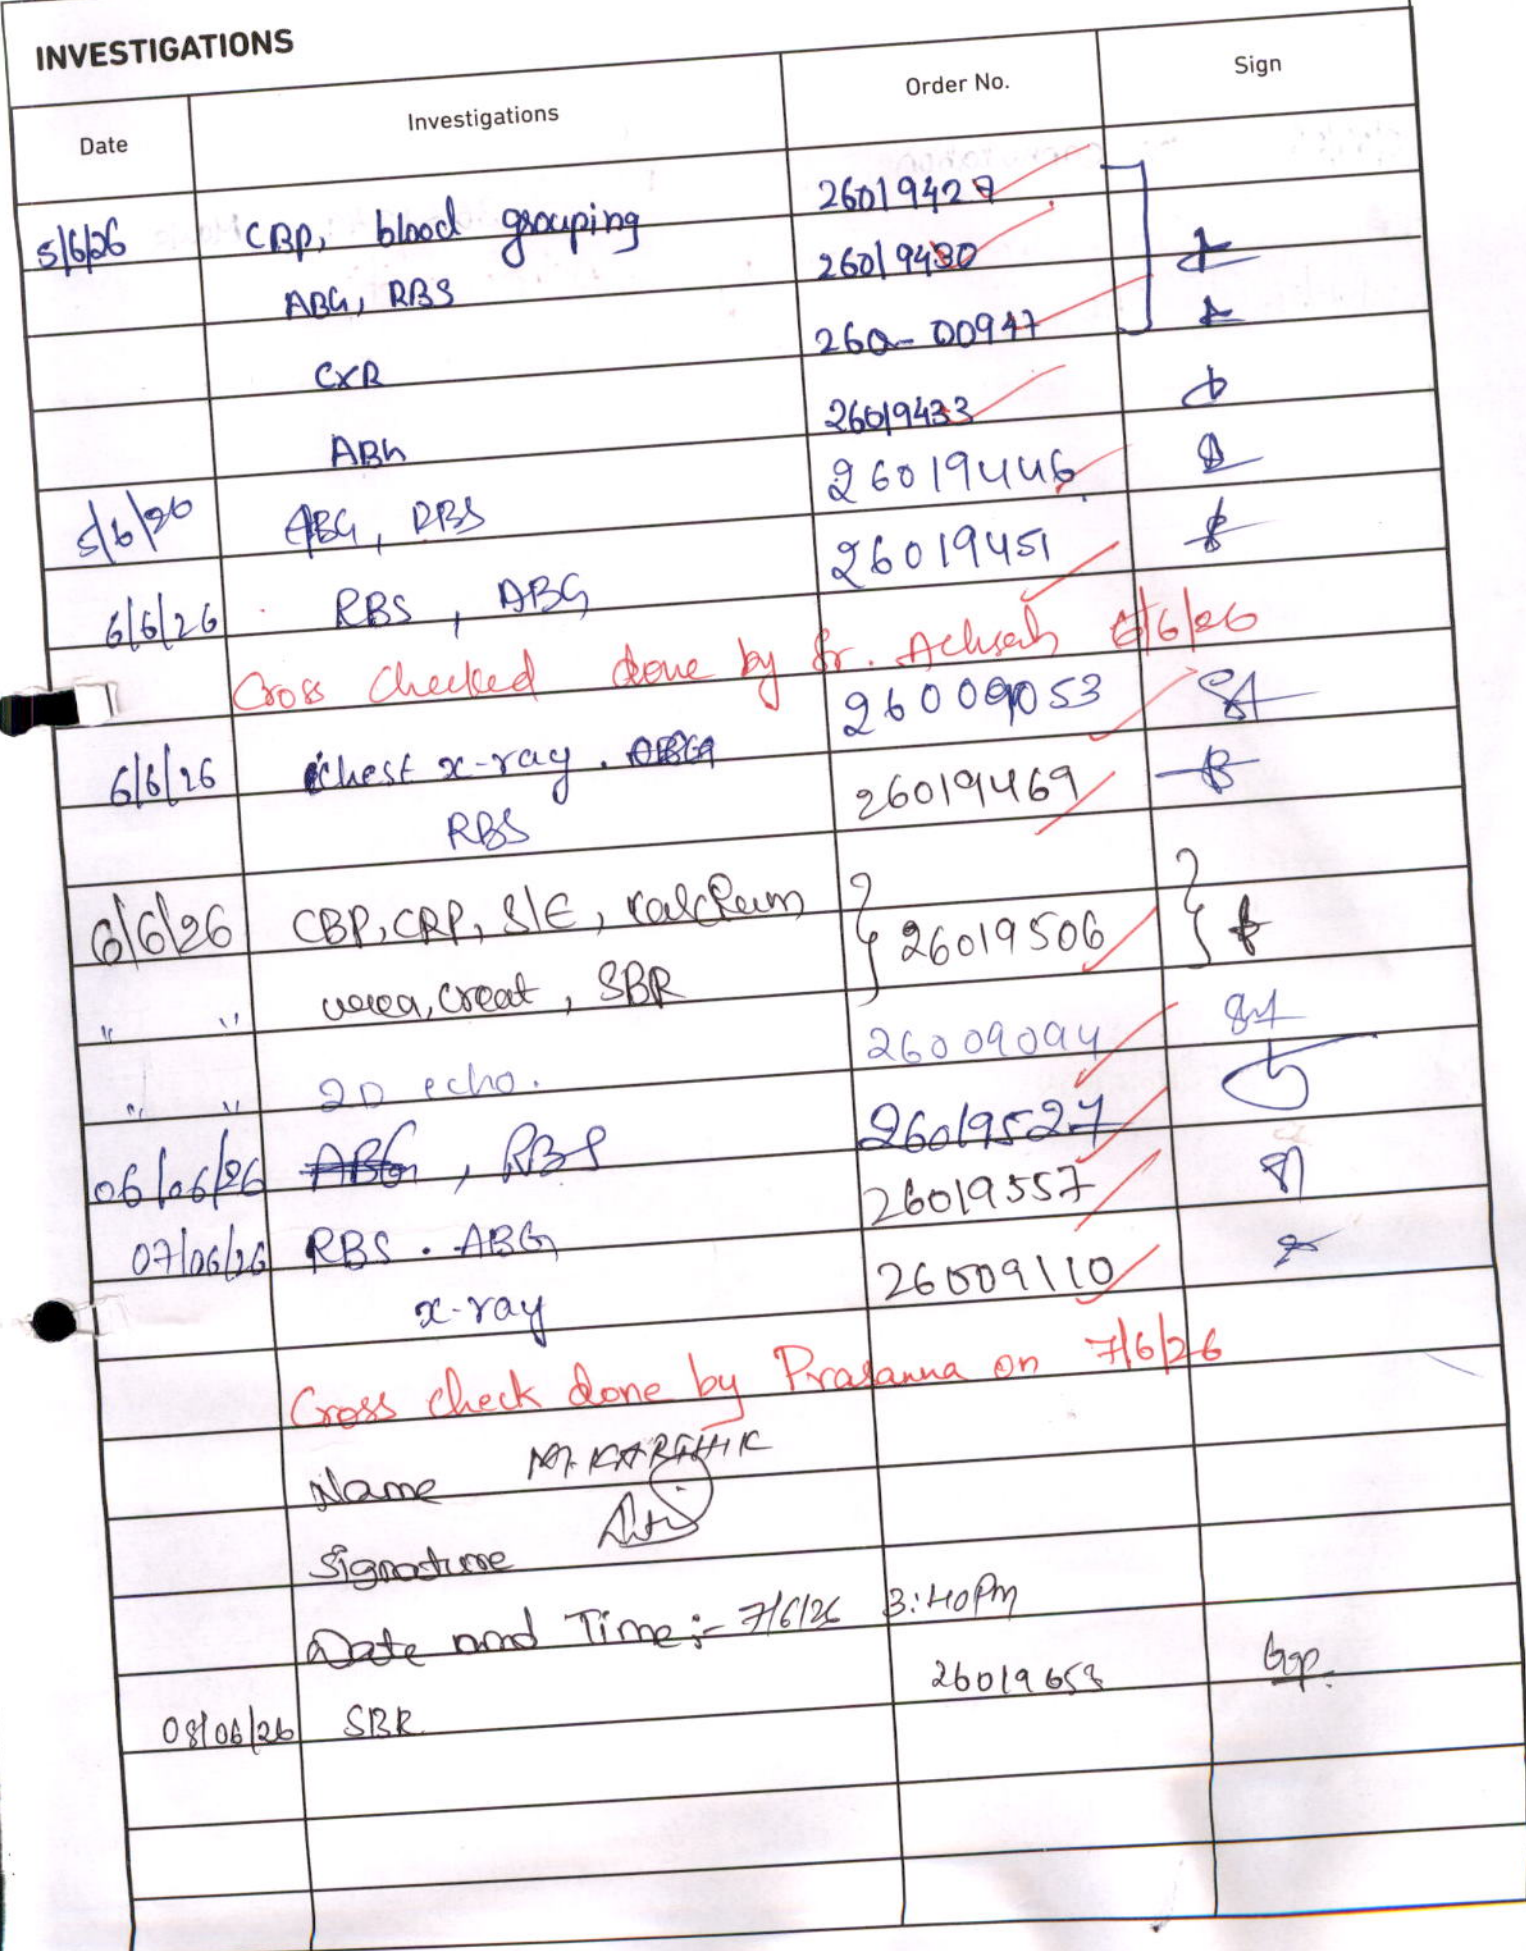 INVESTIGATIONS
Date Investigations Order No. Sign
5/6/26 CBP, blood grouping 26019427
ABG, RBS 26019430
CXR 260-00947
ABG 26019433
5/6/26 ABG, RBS 26019446
6/6/26 RBS, ABG 26019451
Cross checked done by Sr. Achsah 6/6/26
6/6/26 Chest x-ray. 26009053
RBS 26019469
6/6/26 CBP, CRP, S/E, calcium 26019506
" " urea, creat, SBR
" " 2D echo. 26009094
06/06/26 ABG, RBS 26019527
07/06/26 RBS. ABG 26019557
x-ray 26009110
Cross check done by Prasanna on 7/6/26
Name M. KARTHIK
Signature
Date and Time:- 7/6/26 3:40Pm
08/06/26 SBR 26019653